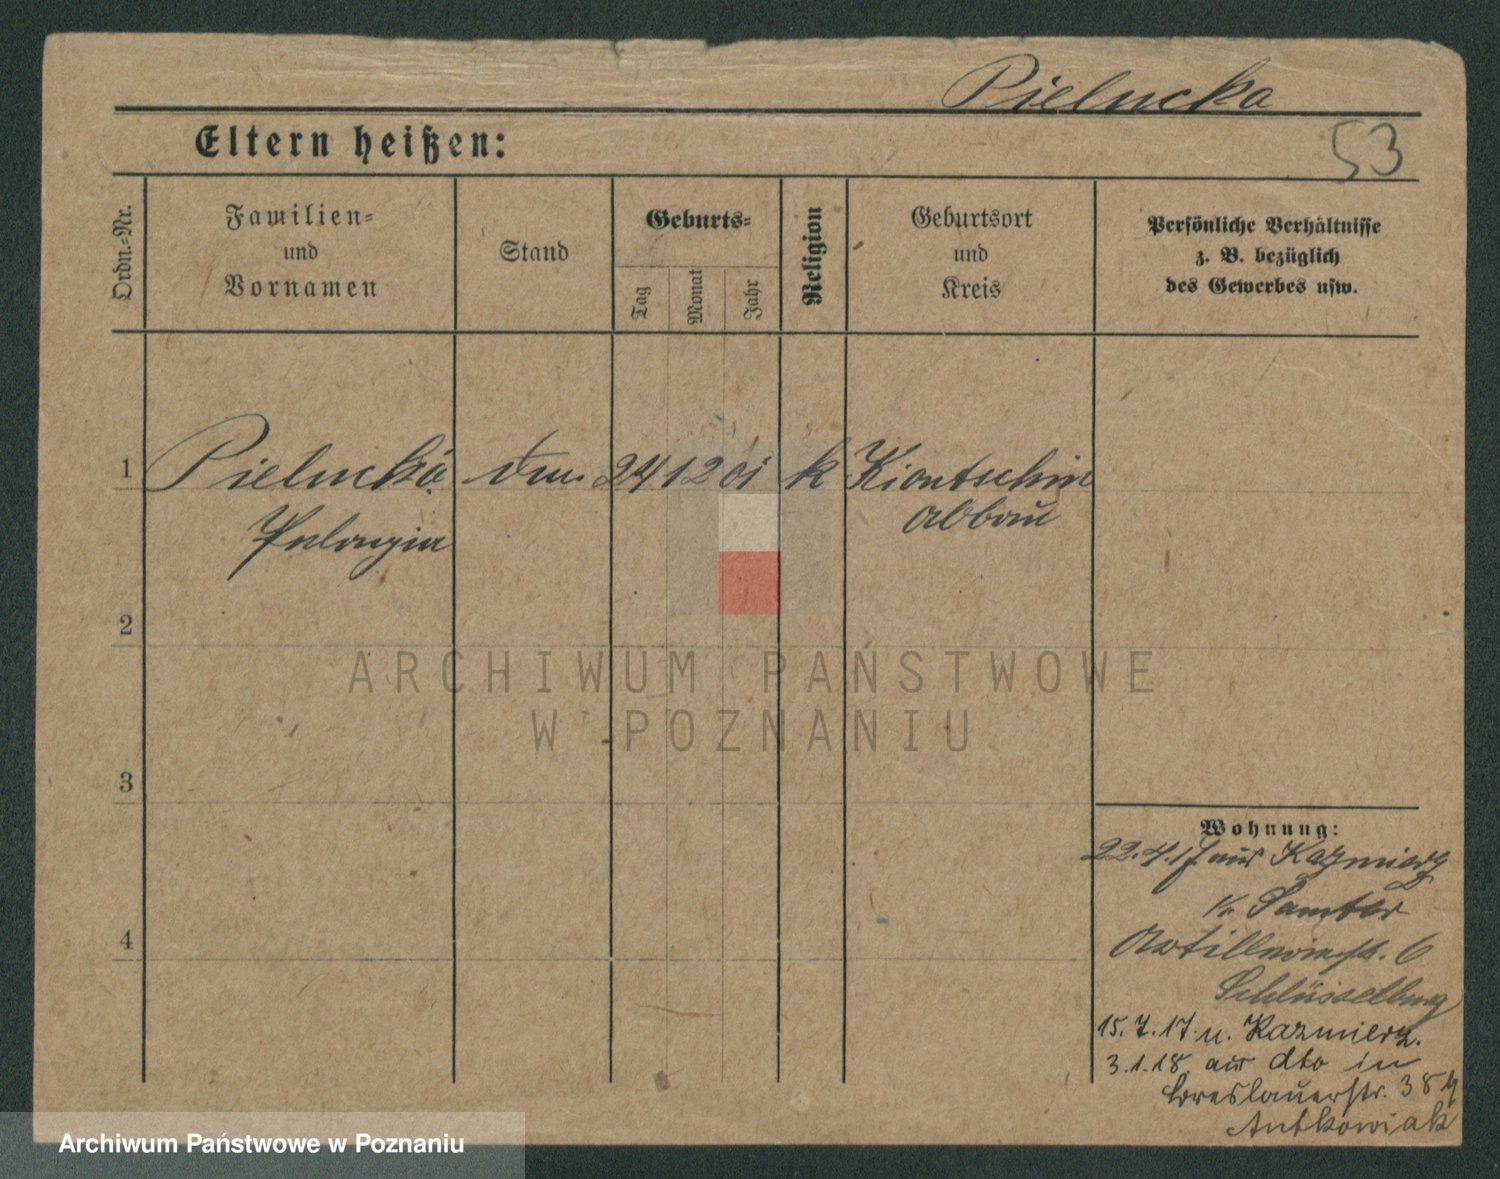 Pielucka
Eltern heißen:
53
Ordn.=Nr.
Familien=
und
Vornamen
Stand
Geburts=
Tag
Monat
Jahr
Religion
Geburtsort
und
Kreis
Persönliche Verhältnisse
z. B. bezüglich
des Gewerbes usw.
1 Pielucka 24 12 01 k Kiontschin
Pelagia Abbau
2
3
4
Wohnung:
22.4.17 aus Kazmierz
Kr. Samter
Artilleriestr. 6
Schlüsselburg
15.7.17 n. Kazmierz.
3.1.18. aus dto in
Breslauerstr. 38
Antkowiak
ARCHIWUM PAŃSTWOWE
W POZNANIU
Archiwum Państwowe w Poznaniu